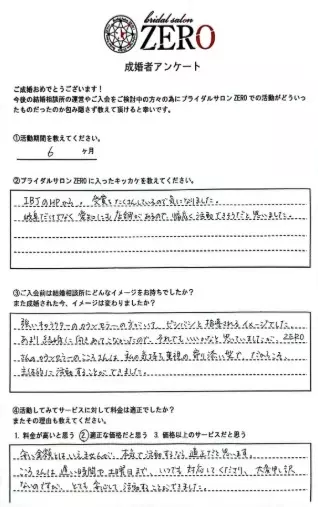 bridal salon
ZERO
成婚者アンケート
ご成婚おめでとうございます！
今後の結婚相談所の運営やご入会をご検討中の方々の為にブライダルサロンZEROでの活動がどういっ
たものだったのか包み隠さず教えて頂けると幸いです。
①活動期間を教えてください。
6 ヶ月
②ブライダルサロンZEROに入ったキッカケを教えてください。
IBJのHPから、受賞をたくさんしているので気になりました。
岐阜だけでなく愛知にも店舗があるので、幅広く活動できそうだと思いました。
③ご入会前は結婚相談所にどんなイメージをお持ちでしたか？
また成婚された今、イメージは変わりましたか？
強いキャラクターのカウンセラーの方がいて、ビシバシと指導されるイメージでした。
あまり結婚に向きあってこなかったので、それでもいいかなと思っていましたが、ZERO
さんのカウンセラーのこころさんは、私の気持ち重視の寄り添い型で、だからこそ、
主体的に活動することができました。
④活動してみてサービスに対して料金は適正でしたか？
またその理由も教えてください。
1. 料金が高いと思う ②適正な価格だと思う 3. 価格以上のサービスだと思う
安い金額とはいえませんが、本気で活動するなら適正だと思います。
こころさんは遅い時間や土曜日まで、いつも対応してくださり、大変申し訳
ないのですが、とても安心して活動することができました。